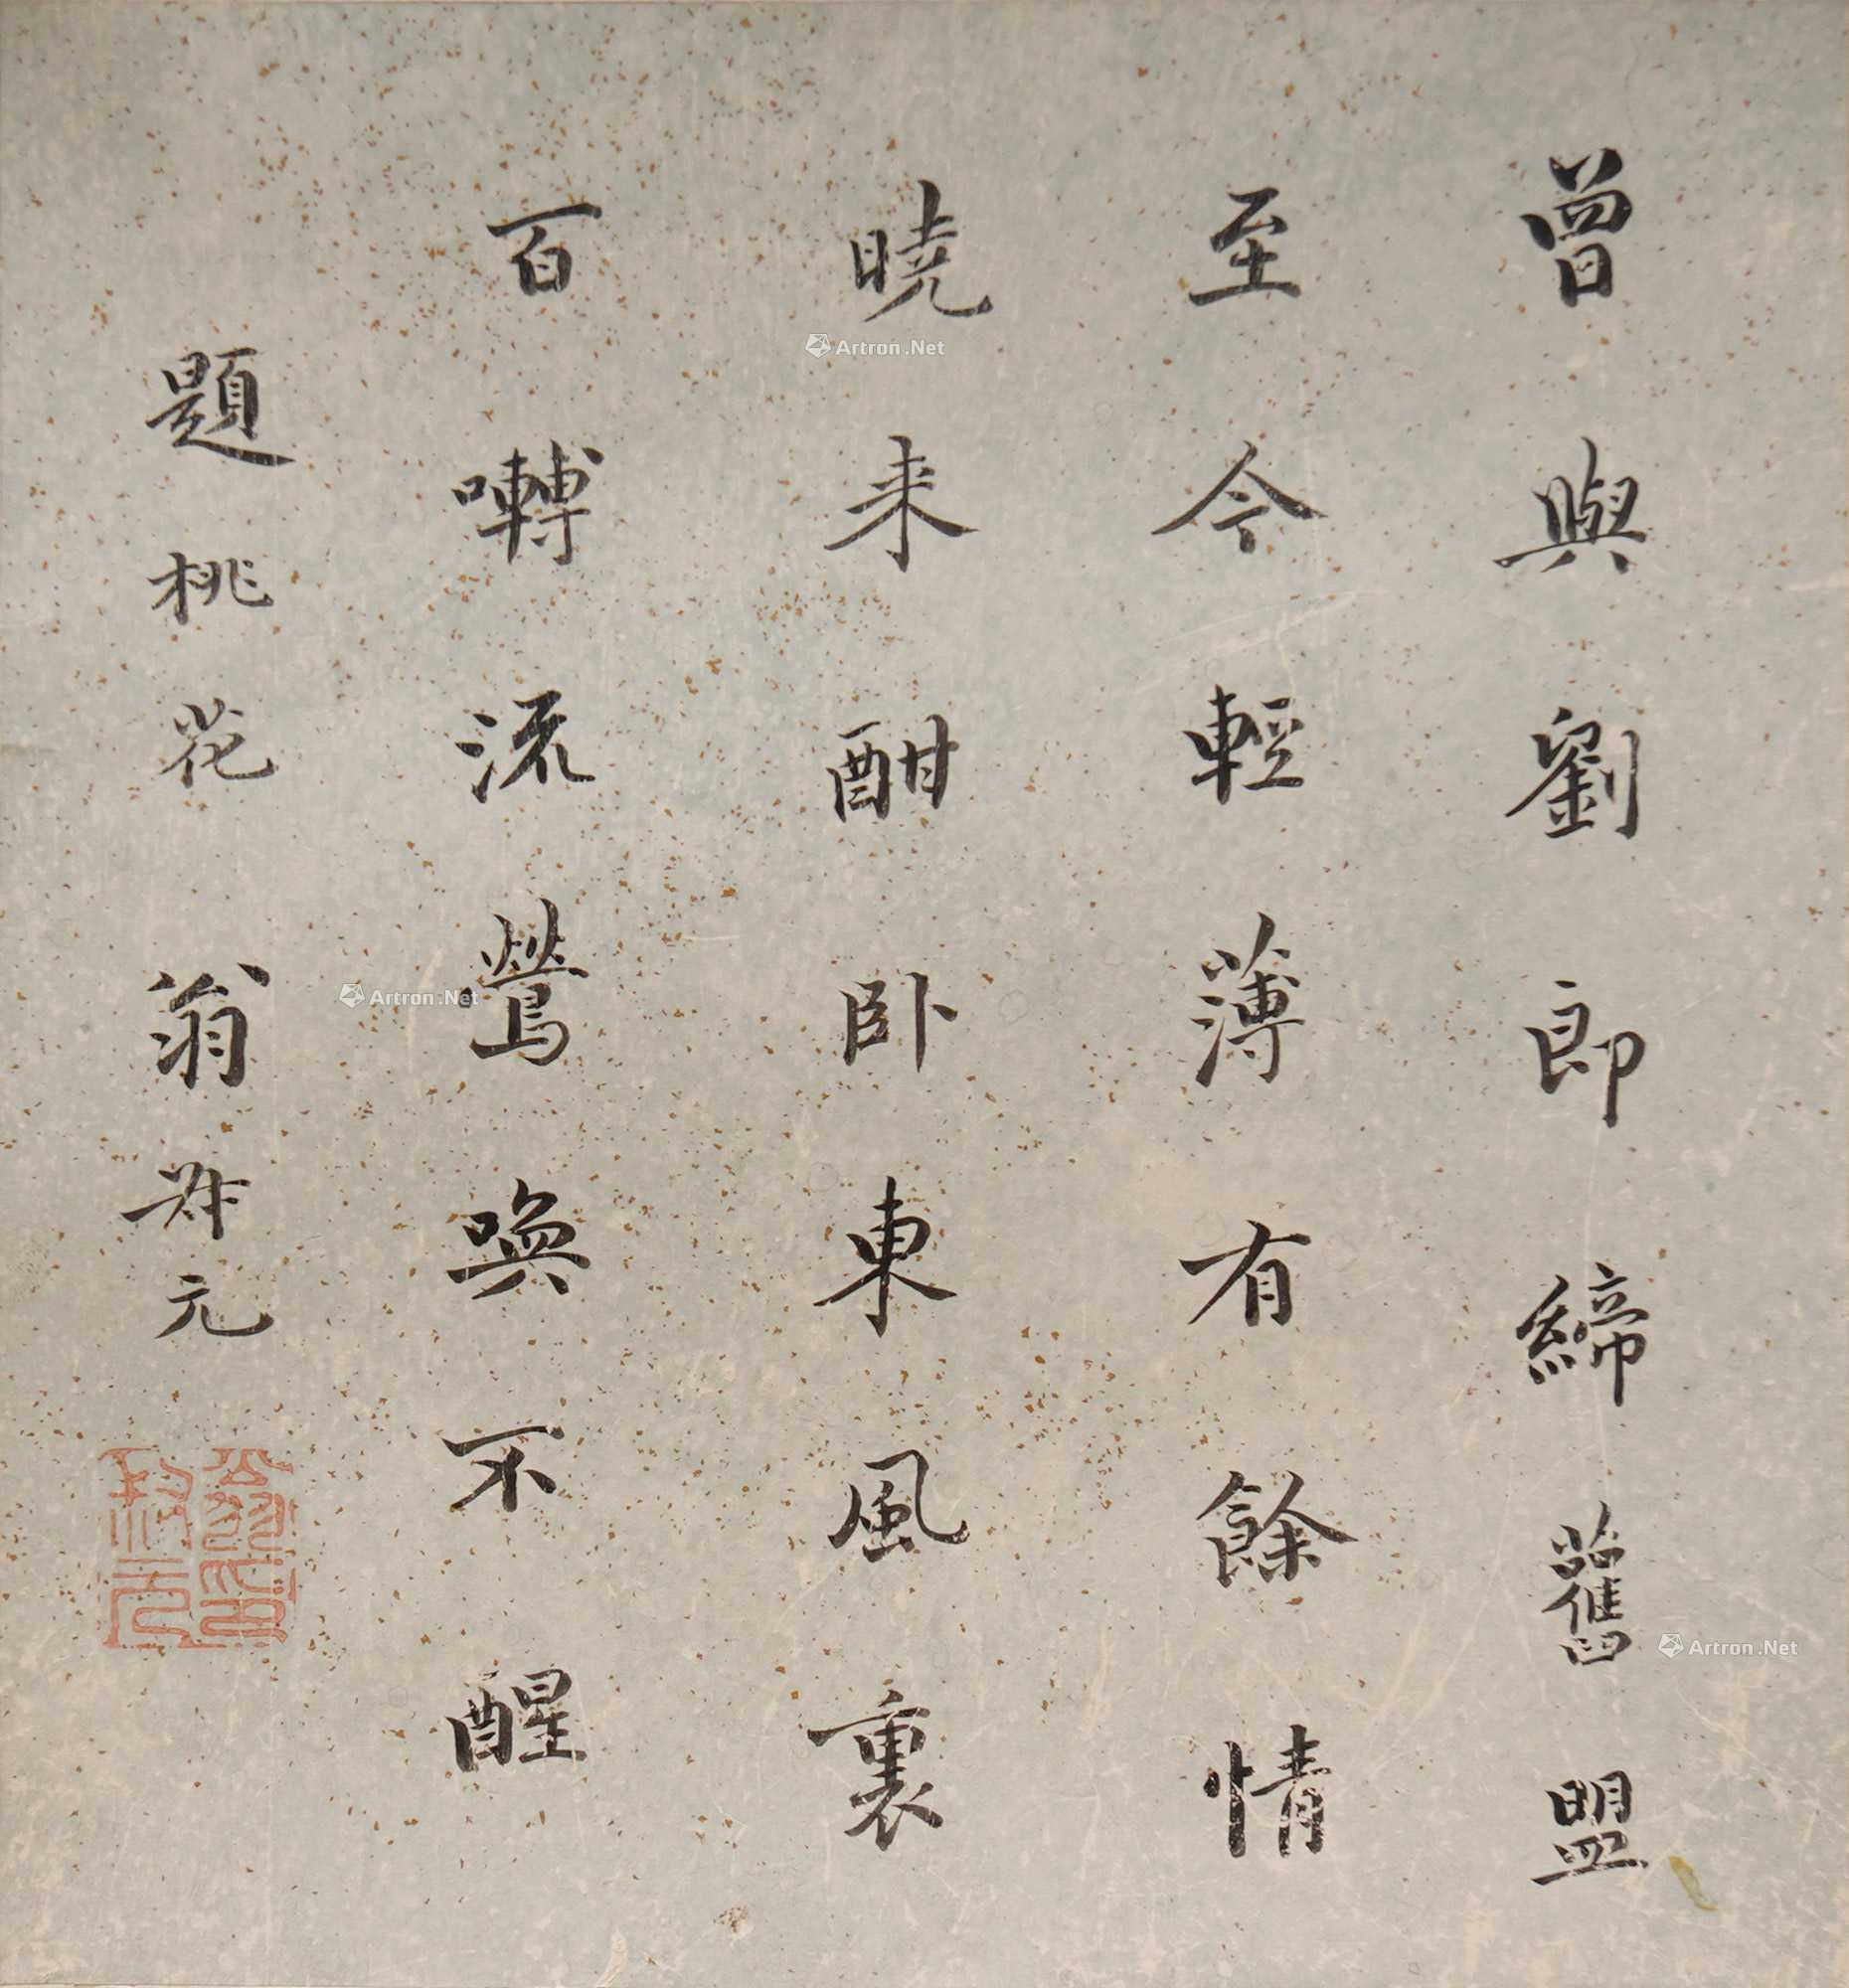 曾與劉郎締舊盟
至今輕薄有餘情
曉来酣卧東風裏
百囀流鶯喚不醒
題桃花 翁
元
Artron.Net
Artron.Net
Artron.Net